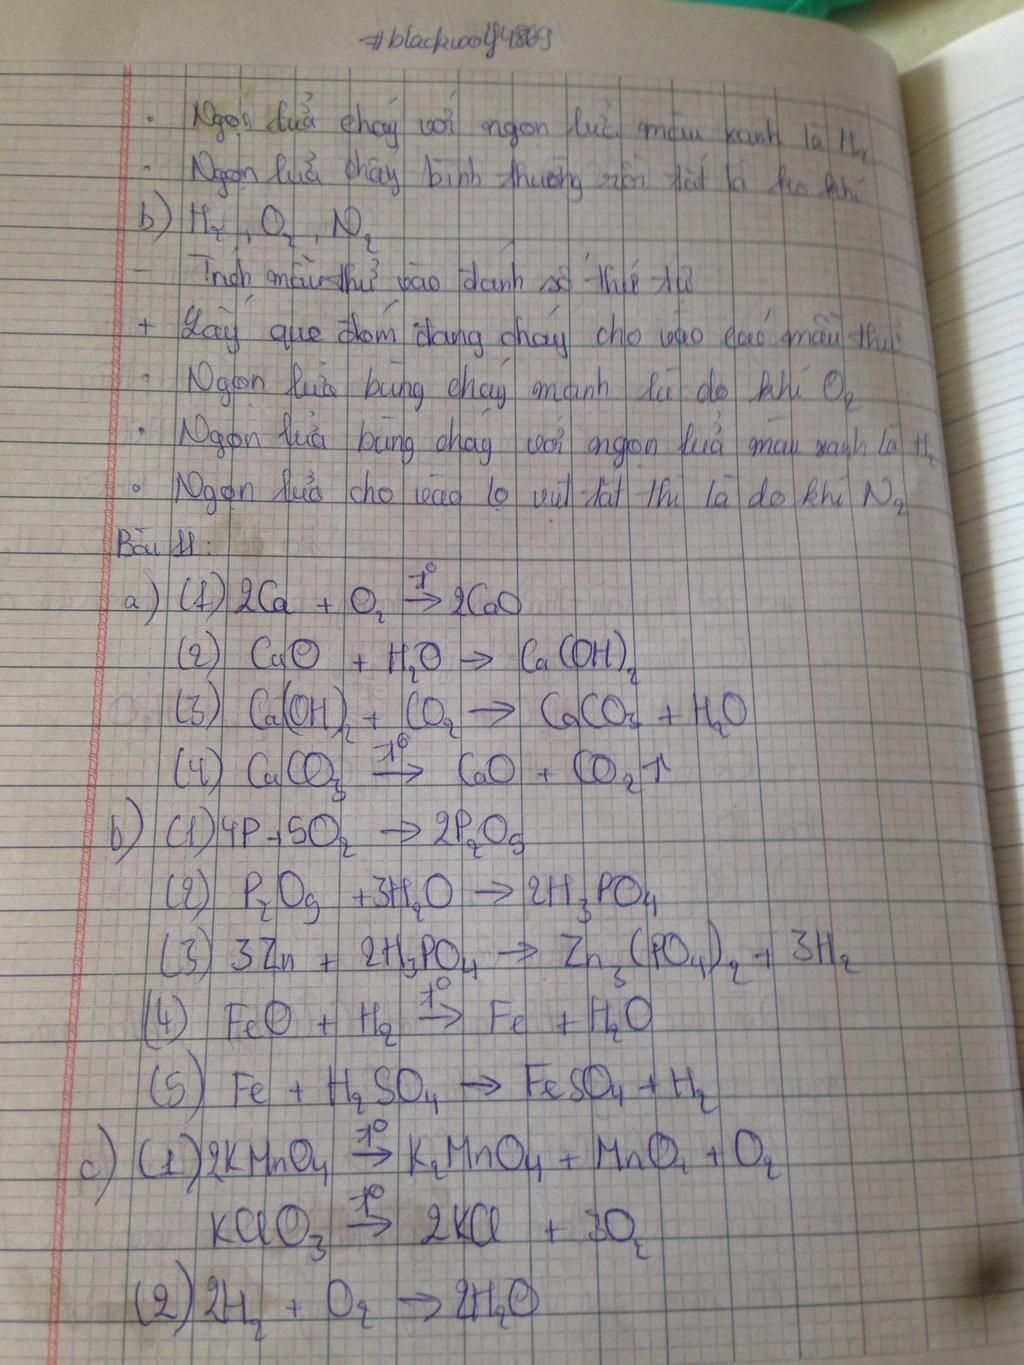 #blackwolf4869
· Ngọn lửa cháy với ngọn lửa màu xanh là H₂
· Ngọn lửa cháy bình thường rồi tắt là do khí
b) H₂, O₂, N₂
- Trích mẫu thử vào đánh số thứ tự
+ Lấy que đóm đang cháy cho vào các mẫu thử
· Ngọn lửa bùng cháy mạnh là do khí O₂
· Ngọn lửa bùng cháy với ngọn lửa màu xanh là H₂
· Ngọn lửa cho vào lọ vụt tắt thì là do khí N₂
Bài 11:
a) (1) 2Ca + O₂ →(t°) 2CaO
(2) CaO + H₂O → Ca(OH)₂
(3) Ca(OH)₂ + CO₂ → CaCO₃ + H₂O
(4) CaCO₃ →(t°) CaO + CO₂↑
b) (1) 4P + 5O₂ → 2P₂O₅
(2) P₂O₅ + 3H₂O → 2H₃PO₄
(3) 3Zn + 2H₃PO₄ → Zn₃(PO₄)₂ + 3H₂
(4) FeO + H₂ →(t°) Fe + H₂O
(5) Fe + H₂SO₄ → FeSO₄ + H₂
c) (1) 2KMnO₄ →(t°) K₂MnO₄ + MnO₂ + O₂
KClO₃ →(t°) 2KCl + 3O₂
(2) 2H₂ + O₂ → 2H₂O